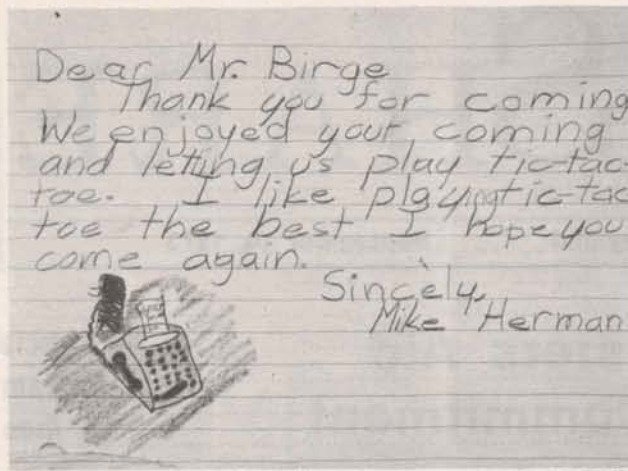 Dear Mr. Birge
Thank you for coming
We enjoyed your coming
and letting us play tic-tac-
toe. I like playingtic-tac
toe the best I hope you
come again.
Sincely,
Mike Herman